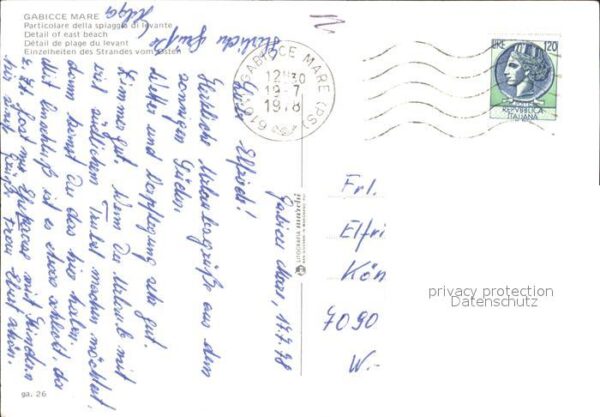 GABICCE MARE
Particolare della spiaggia di levante
Detail of east beach
Détail de plage du levant
Einzelheiten des Strandes vom Osten
61011 GABICCE MARE (PS)
12 30
19-7
1978
LIRE 120
REPUBBLICA
ITALIANA
Gabicce Mare, 17.7.78
Liebe Elfriede!
Herzliche Urlaubsgrüße aus dem
sonnigen Süden.
Wetter und Verpflegung sehr gut.
Zimmer gut. Wenn Du Urlaub mit
viel südlichem Trubel machen möchtest,
dann kannst Du das hier haben.
Mit Anschluß ist es etwas schlecht, da
z. Zt. fast nur Ehepaare mit Kindern
hier sind.
Herzliche Grüße
Helga
Frl.
Elfri
Kön
7090
W.-
privacy protection
Datenschutz
ga. 26